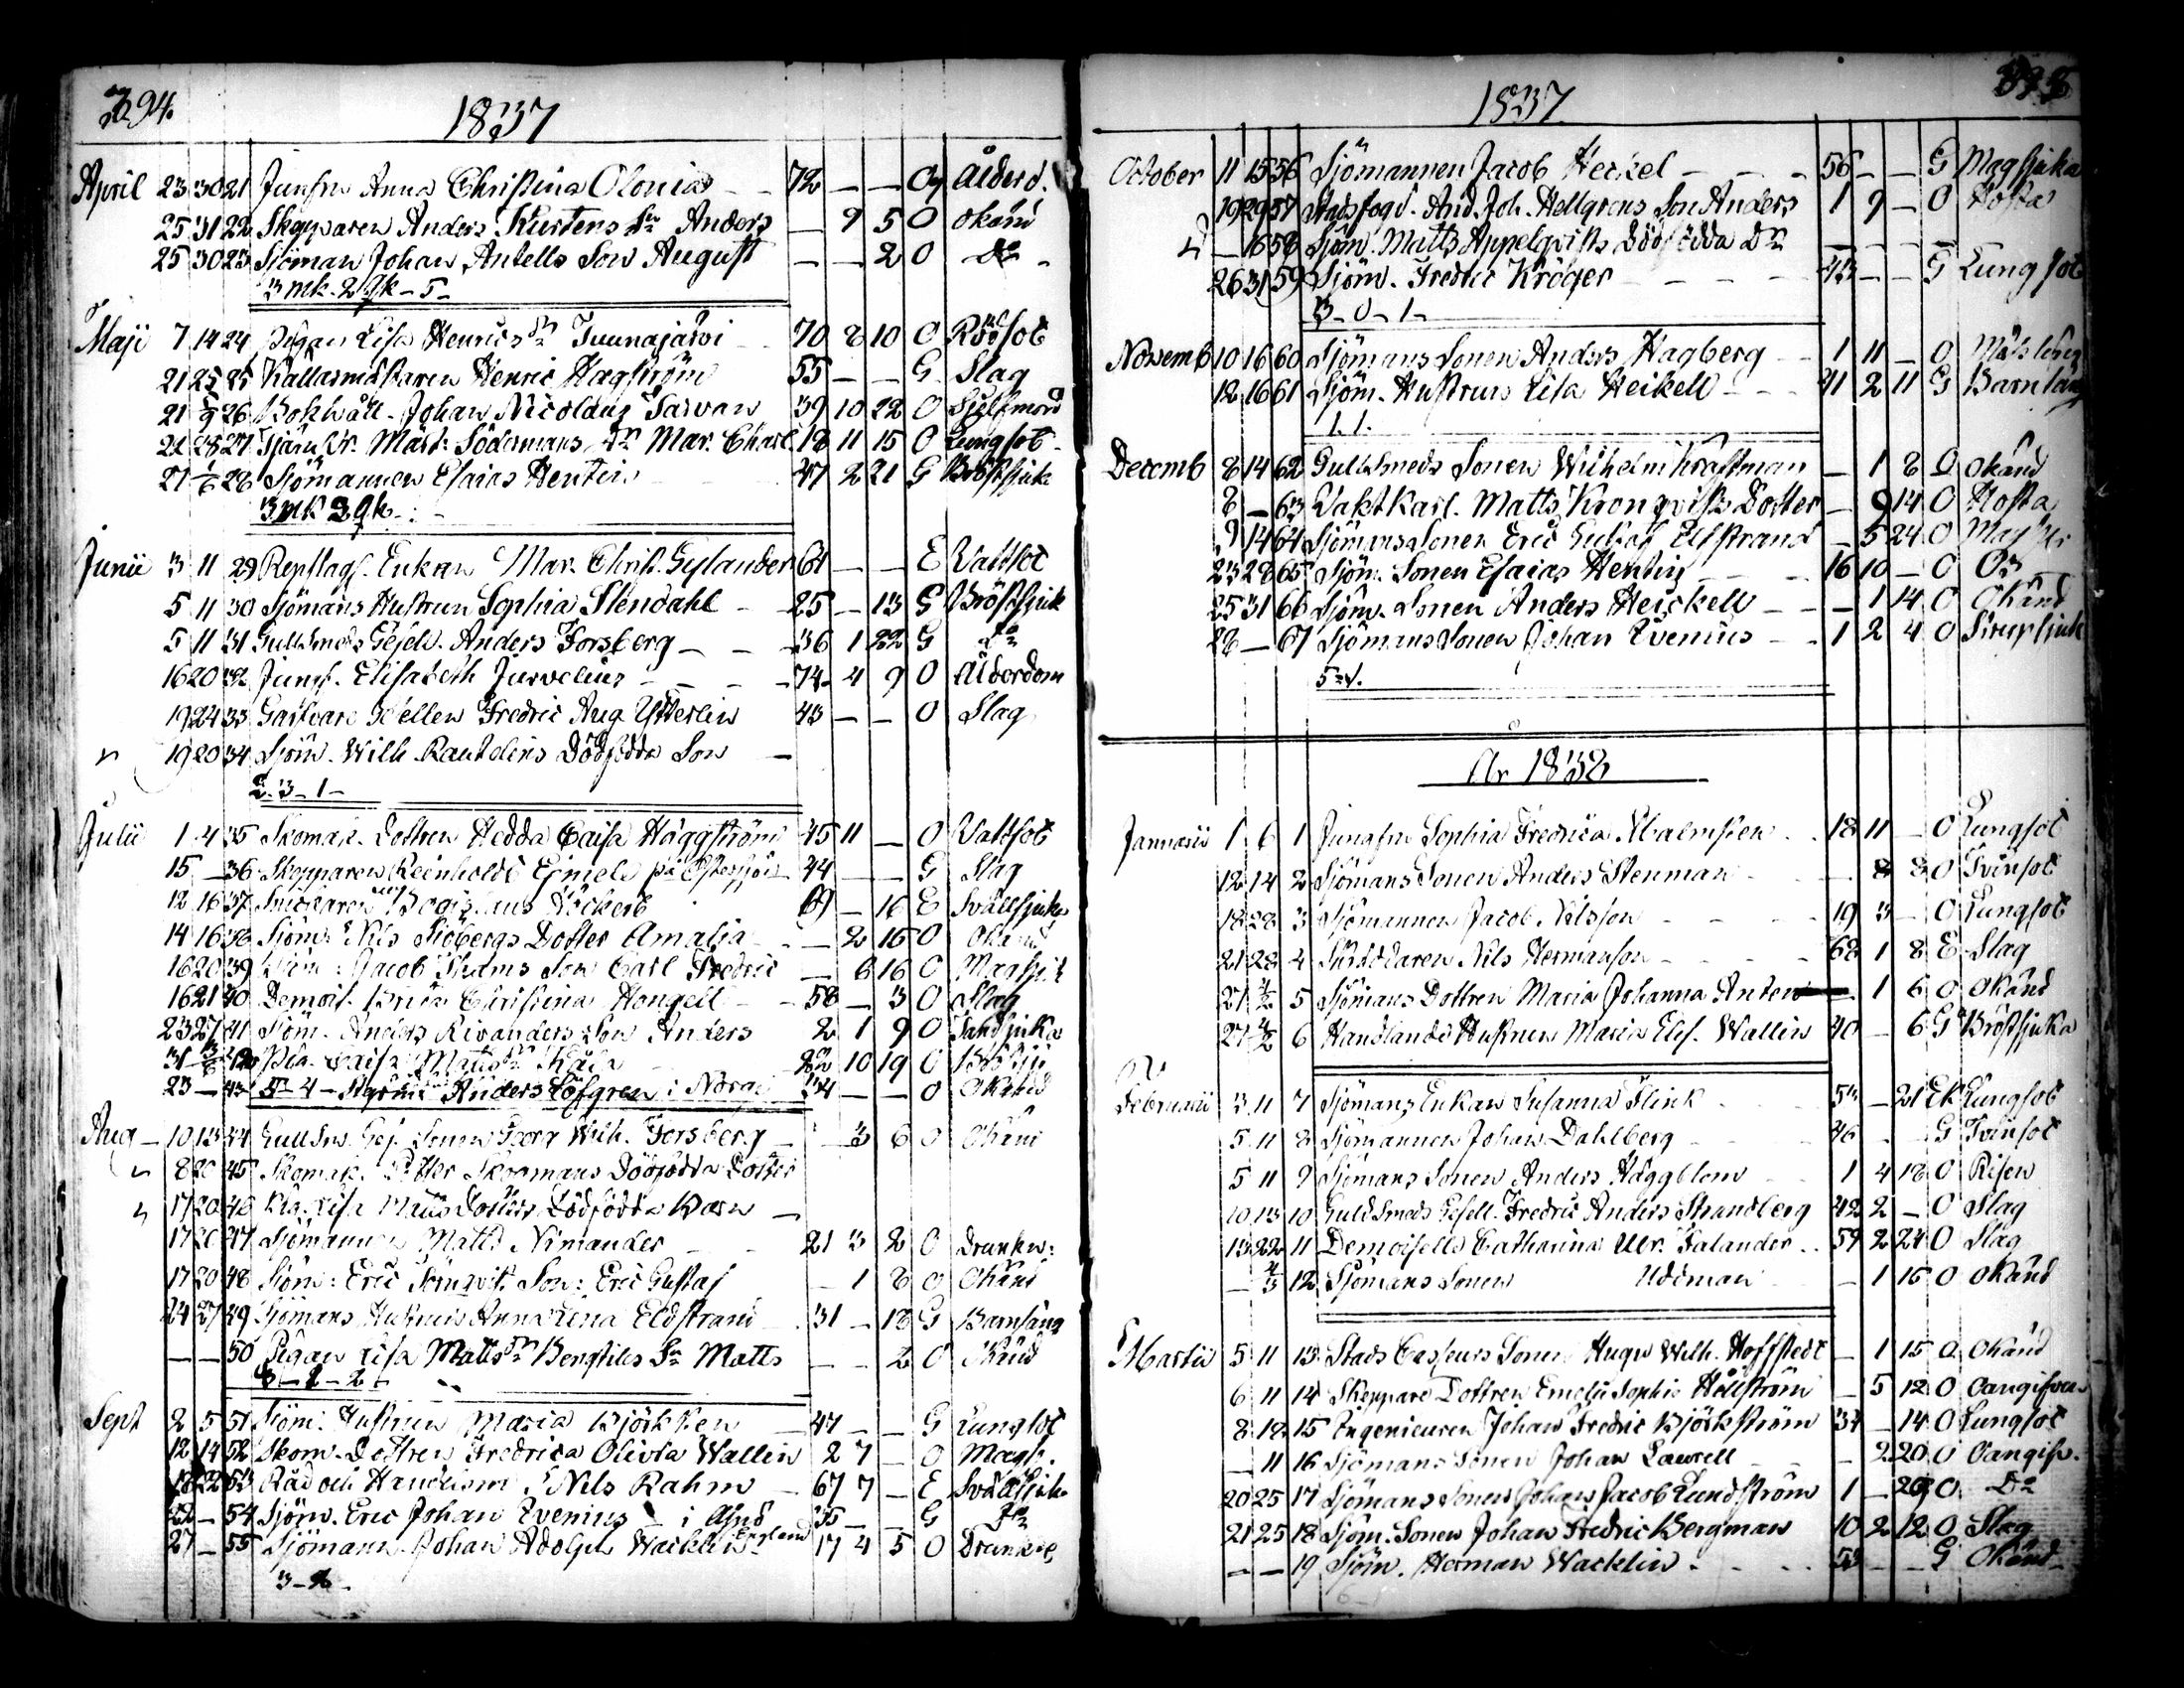 1837
April 23 30 21 Jungfru Anna Christina Olonia 72 — — Og Ålderd.
25 31 22 Skepparen Anders Kurtens Sn Anders — 9 5 O okänd
25 30 23 Sjöman Johan Antells Son August — — 2 O Do
3 mk. 2 qk - 5 -
Maji 7 14 24 Pigan Lisa Henricsdr Juunajärvi 70 8 10 O Rödsot
21 25 25 Henric Hagström 55 — — G Slag
21 26 Bokhåll. Johan Nicolaus 39 10 22 O Sjelfmord
22 28 27 Södermans Dr Mar. Charl. 18 11 15 O Lungsot
27 28 Sjömannen Esaias Hentin 47 2 21 G Bröstsjuk
3 mk 2 qk
Junii 3 11 29 Repslag. Enkan Mar. Christ. Gylander 61 — — E Vattsot
5 11 30 Sjömans Hustrun Sophia Stendahl 25 — 13 G Bröstsjuk
5 11 31 Gullsmeds Gesell. Anders Forsberg 36 1 22 G Do
16 20 32 Jungf. Elisabeth Jurvelius 74 4 9 O Ålderdom
19 24 33 Garfvare Gesellen Fredric Aug. Ytterlin 43 — — O Slag
19 20 34 Sjöm. Wilh. Rautelins Dödfödda Son —
2 - 3 - 1 -
Julii 1 4 35 Skomak. Dottren Hedda Caisa Häggström 45 11 — O Vattsot
15 — 36 Skepparen Reinholdt 44 — — G Slag
12 16 37 69 — 16 E Svällsjuka
14 16 38 Sjöm. Nils Sjöbergs Dotter Amalia — 2 15 O okänd
16 20 39 Sjöm. Jacob Thams Son Carl Fredric — 6 16 O Magsjuk
16 21 40 Demois. Brita Christina Hongell 58 — 3 O Slag
23 27 41 Sjöm. Anders Rivanders Son Anders 2 1 9 O
42 22 10 19 O
23 — 43 Anders Löfgren i Norge 34 — — O Okänd
Aug 10 13 44 Gullsm. Ges. Sonen Georg Wilh. Forsberg — 3 6 O Okänd
8 20 45 Skomak. Petter Skoomans Dödfödda Dotter
17 20 46 Lisa Matts Dotters Dödfödda Barn —
17 20 47 Sjömannen Matts Nimander 21 3 2 O Drunkn:
17 20 48 Sjöm: Eric Son: Eric Gustaf — 1 8 O Okänd
24 27 49 Sjömans Hustrun Anna Lena Eldstrand 31 — 18 G Barnsäng
— — 50 Pigan Lisa Mattsdr Bengtiles Sn Matts — — 2 O Okänd
Sept 2 5 51 Sjöm. Hustrun Maria Björkken 47 — — G Lungsot
12 14 52 Skom. Dottren Fredrica Olivia Wallin 2 7 — O Magsj.
18 22 53 Råd och Handelsm. Nils Rahm 67 7 — E Svällsjuk
22 — 54 Sjöm. Eric Johan Evenius 35 — — G Do
27 — 55 Sjömann Johan Adolph Wacklin England 17 4 5 O Drunkn
1837
October 11 15 56 Sjömannen Jacob Heckel 56 — — G Magsjuka
19 29 57 Stadsfogd. And. Joh. Hellgrens Son Anders 1 9 — O Hosta
— 16 58 Sjöm. Matts Appelqvists Dödfödda Dr — — — —
26 31 59 Sjöm. Fredric Kröger 43 — — G Lungsot
3 - 0 - 1 -
Novemb 10 16 60 Sjömans Sonen Anders Hagberg 1 11 — O
12 16 61 Sjöm. Hustrun Lisa Heikell 41 2 11 G Barnsäng
1. 1.
Decemb 8 14 62 Gullsmeds Sonen Wilhelm Kraftman — 1 8 O okänd
8 — 63 Waktkarl. Matts Kronqvists Dotter — 9 14 O Hosta
9 14 64 Sjömans Sonen Eric Gustaf Elfstrand — 5 24 O
23 28 65 Sjöm. Sonen Esaias Hentin 16 10 — O Do
25 31 66 Sjöm. Sonen Anders Heickell — 1 14 O Okänd
28 — 67 Sjömans Sonen Johan Evenius 1 2 4 O Strupsjuk
År 1838
Januarii 1 6 1 Jungfru Sophia Fredrica Malmsten 18 11 — O Lungsot
12 14 2 Sjömans Sonen Anders Stenman — 8 3 O Tvinsot
18 28 3 Sjömannen Jacob Nilsson 19 3 — O Lungsot
21 28 4 Skräddaren Nils Hermanson 68 1 8 E Slag
27 4/2 5 Sjömans Dottren Maria Johanna Anten — 1 6 O Okänd
27 4/2 6 Handlande Hustrun Maria Elis. Wallin 40 — 6 G Bröstsjuka
Februarii 3 11 7 Sjömans Enkan Susanna Flink 53 — 21 Ek Lungsot
5 11 8 Sjömannen Johan Dahlberg 46 — — G Tvinsot
5 11 9 Sjömans Sonen Anders Häggblom 1 4 18 O Risen
10 13 10 Guldsmeds Gesell. Fredric Anders Strandberg 42 2 — O Slag
13 22 11 Demoiselle Catharina Ulr. Falander 59 2 24 O Slag
— 4/3 12 Sjömans Sonen Uddman — 1 15 O okänd
Martii 5 11 13 Stads Casseurs Sonen Hugo Wilh. Hoffstedt — 1 15 O Okänd
6 11 14 Skeppare Dottren Emelie Sophie Hällström — 5 12 O Oangifven
8 12 15 Ingenieuren Johan Fredric Björkström 34 — 14 O Lungsot
— 11 16 Sjömans Sonen Johan Laurell — 2 20 O Oangifv.
20 25 17 Sjömans Sonen Johan Jacob Lundström 1 — 29 O Do
21 25 18 Sjöm. Sonen Johan Fredric Bergman 10 2 12 O Slag
— — 19 Sjöm. Herman Wacklin 53 — — G Okänd